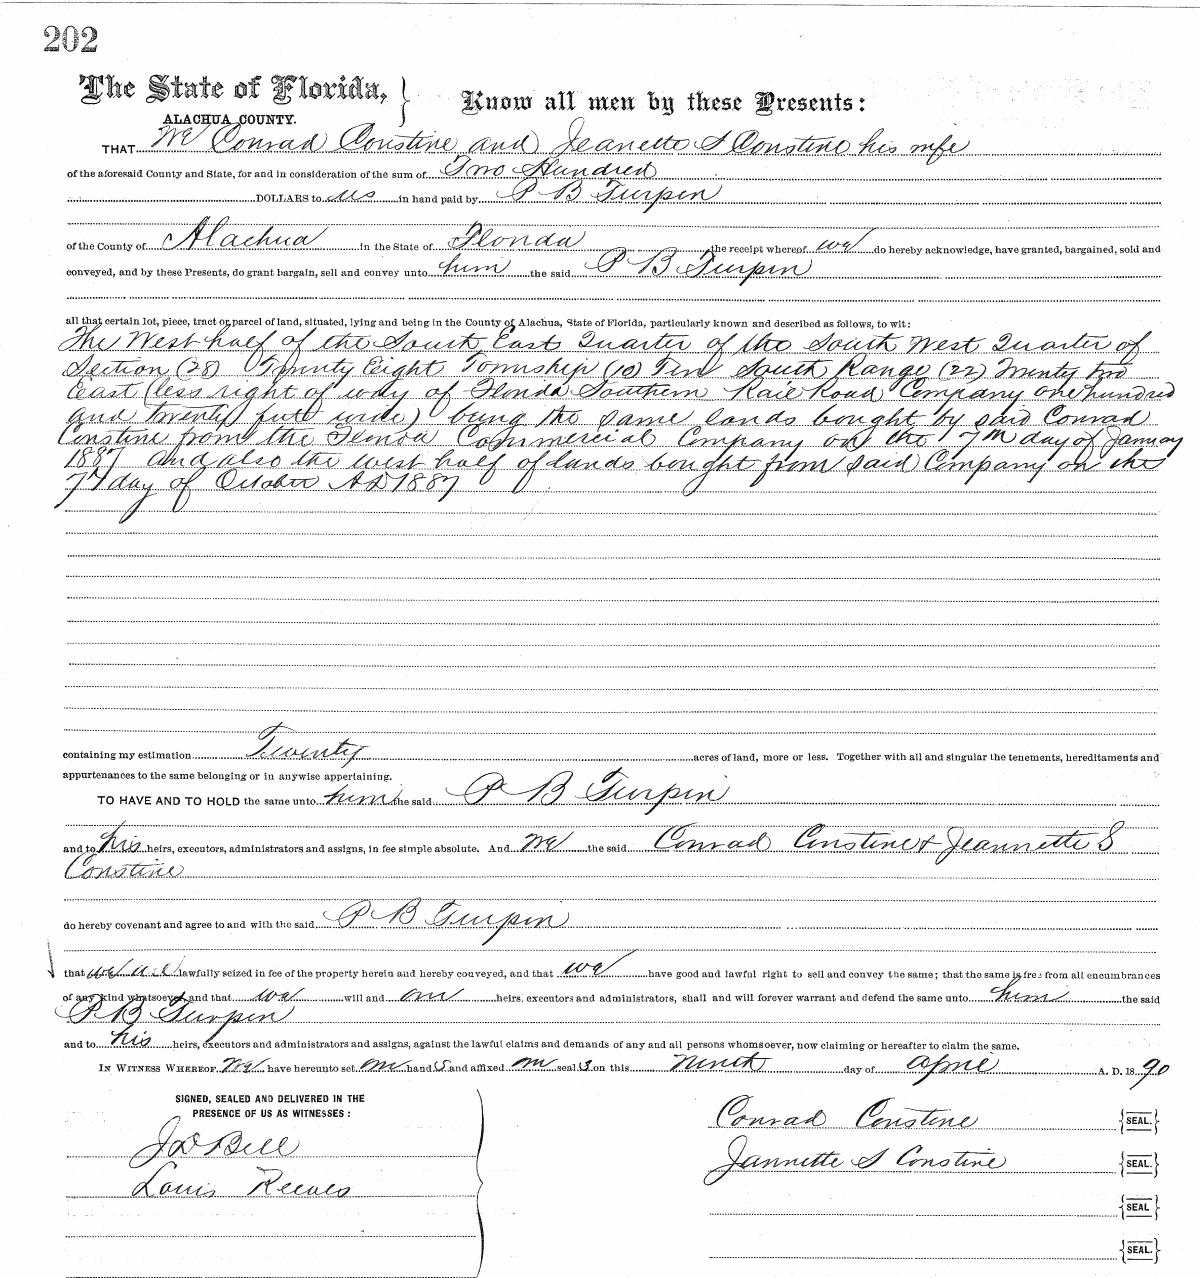 202
The State of Florida,
ALACHUA COUNTY.
Know all men by these Presents:
THAT We Conrad Constine and Jeanette S Constine his wife
of the aforesaid County and State, for and in consideration of the sum of Two Hundred
DOLLARS to us in hand paid by P B Turpin
of the County of Alachua in the State of Florida the receipt whereof we do hereby acknowledge, have granted, bargained, sold and
conveyed, and by these Presents, do grant bargain, sell and convey unto him the said P B Turpin
all that certain lot, piece, tract or parcel of land, situated, lying and being in the County of Alachua, State of Florida, particularly known and described as follows, to wit:
The West half of the South East Quarter of the South West Quarter of
Section (28) Twenty Eight Township (10) Ten South Range (22) Twenty two
East (less right of way of Florida Southern Rail Road Company one hundred
and twenty feet wide) being the same lands bought by said Conrad
Constine from the Florida Commercial Company on the 7th day of January
1887 and also the west half of lands bought from said Company on the
7th day of October AD 1887
containing my estimation Twenty acres of land, more or less. Together with all and singular the tenements, hereditaments and
appurtenances to the same belonging or in anywise appertaining.
TO HAVE AND TO HOLD the same unto him the said P B Turpin
and to his heirs, executors, administrators and assigns, in fee simple absolute. And we the said Conrad Constine & Jeannette S
Constine
do hereby covenant and agree to and with the said P B Turpin
that we are lawfully seized in fee of the property herein and hereby conveyed, and that we have good and lawful right to sell and convey the same; that the same is free from all encumbrances
of any kind whatsoever, and that we will and our heirs, executors and administrators, shall and will forever warrant and defend the same unto him the said
P B Turpin
and to his heirs, executors and administrators and assigns, against the lawful claims and demands of any and all persons whomsoever, now claiming or hereafter to claim the same.
IN WITNESS WHEREOF We have hereunto set our hand S and affixed our seal S on this Ninth day of April A. D. 18 90
SIGNED, SEALED AND DELIVERED IN THE
PRESENCE OF US AS WITNESSES:
J D Bell
Louis Reeves
Conrad Constine SEAL.
Jannette S Constine SEAL.
SEAL
SEAL.